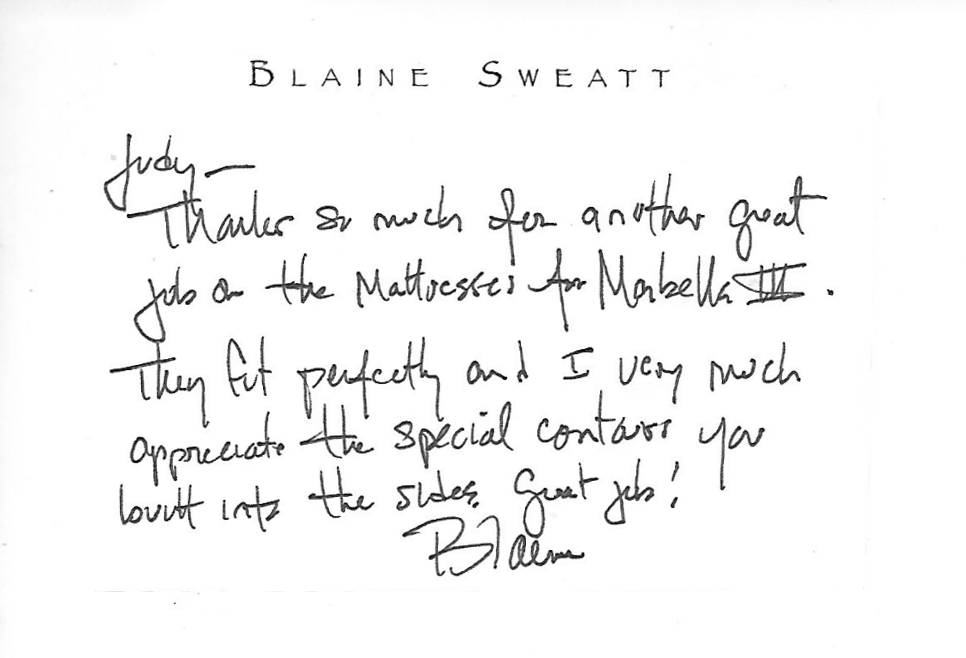 BLAINE SWEATT
Judy —
Thanks so much for another great
job on the Mattresses for Marbella III.
They fit perfectly and I very much
appreciate the special contours you
built into the sides. Great job!
Blaine